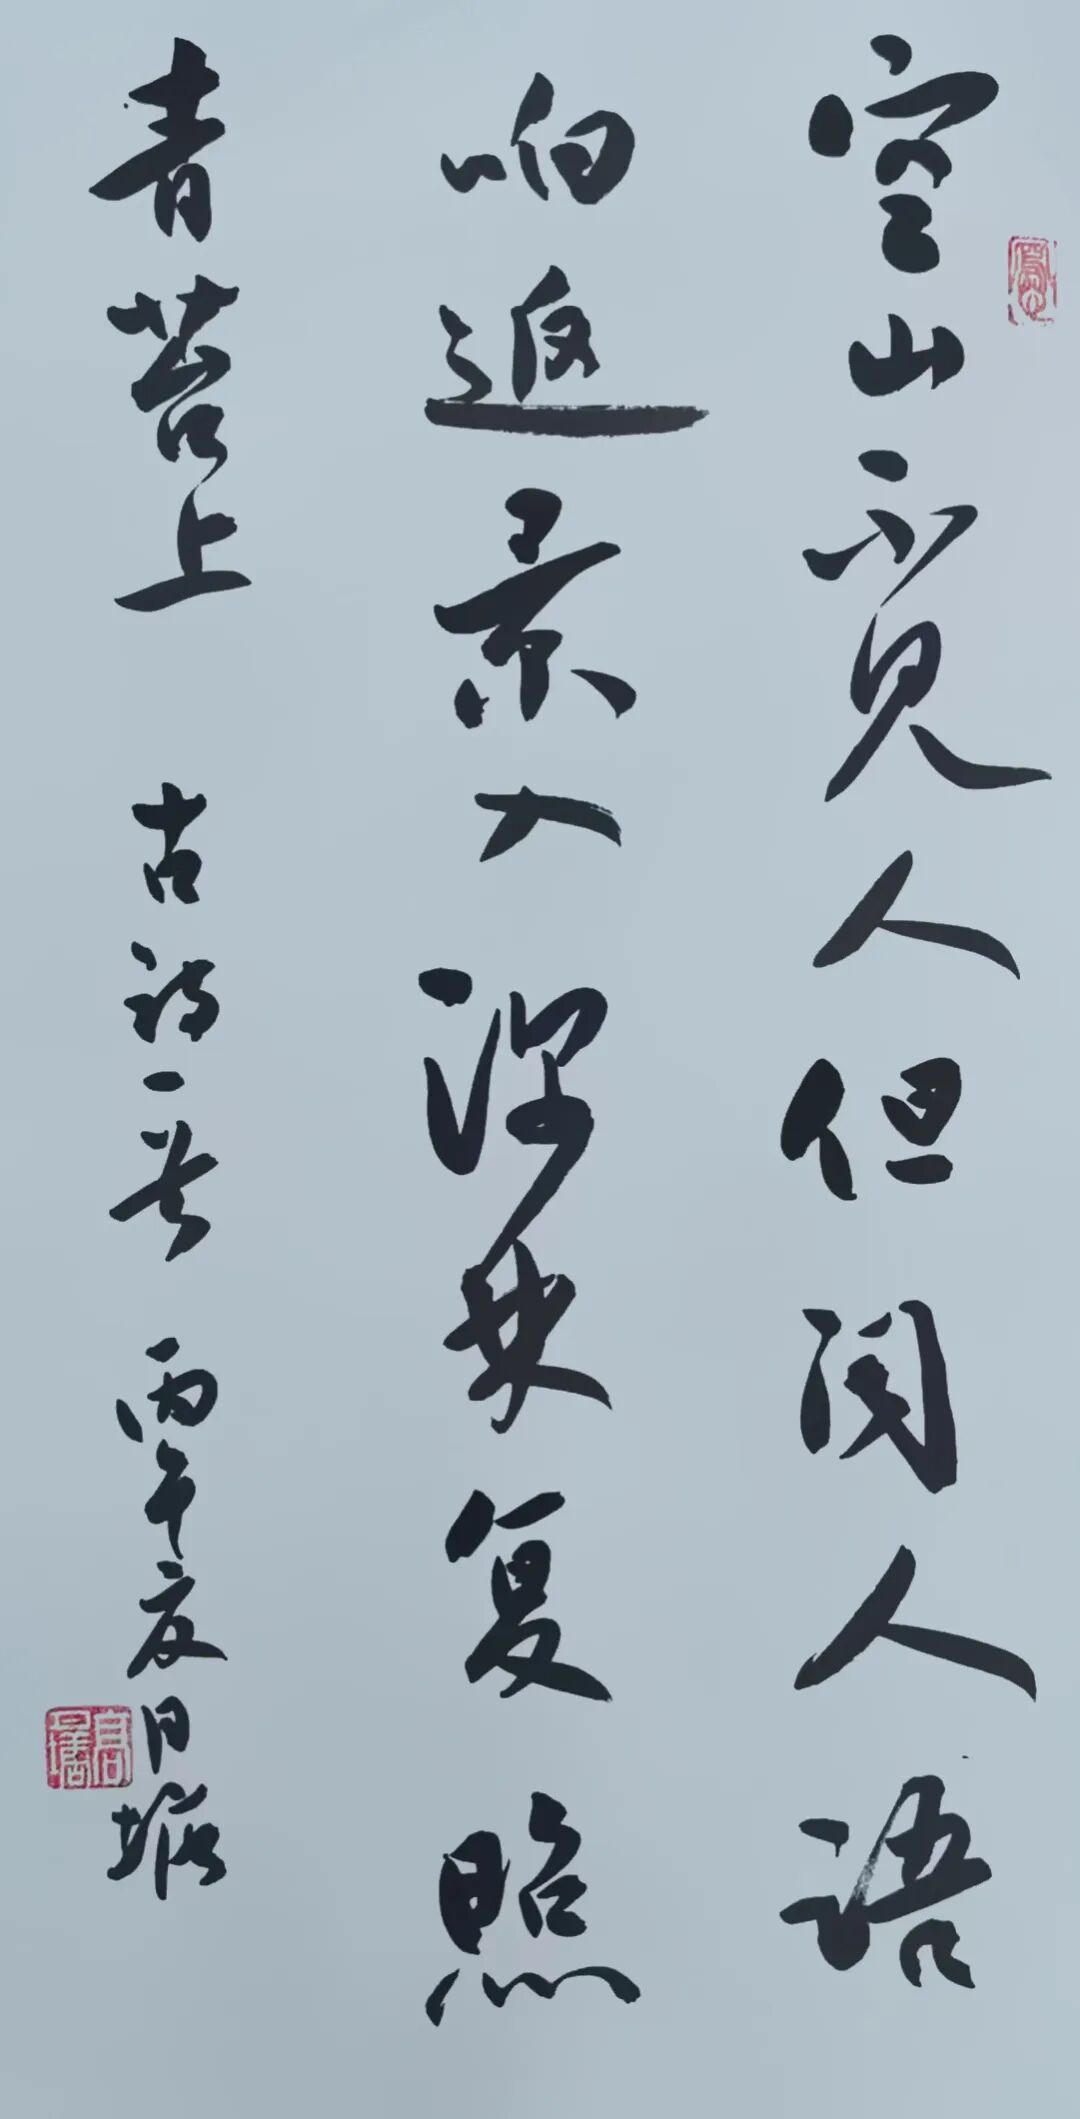 空山不见人但闻人语
响返景入深林复照
青苔上 古诗一首 丙午夏日墉
高墉